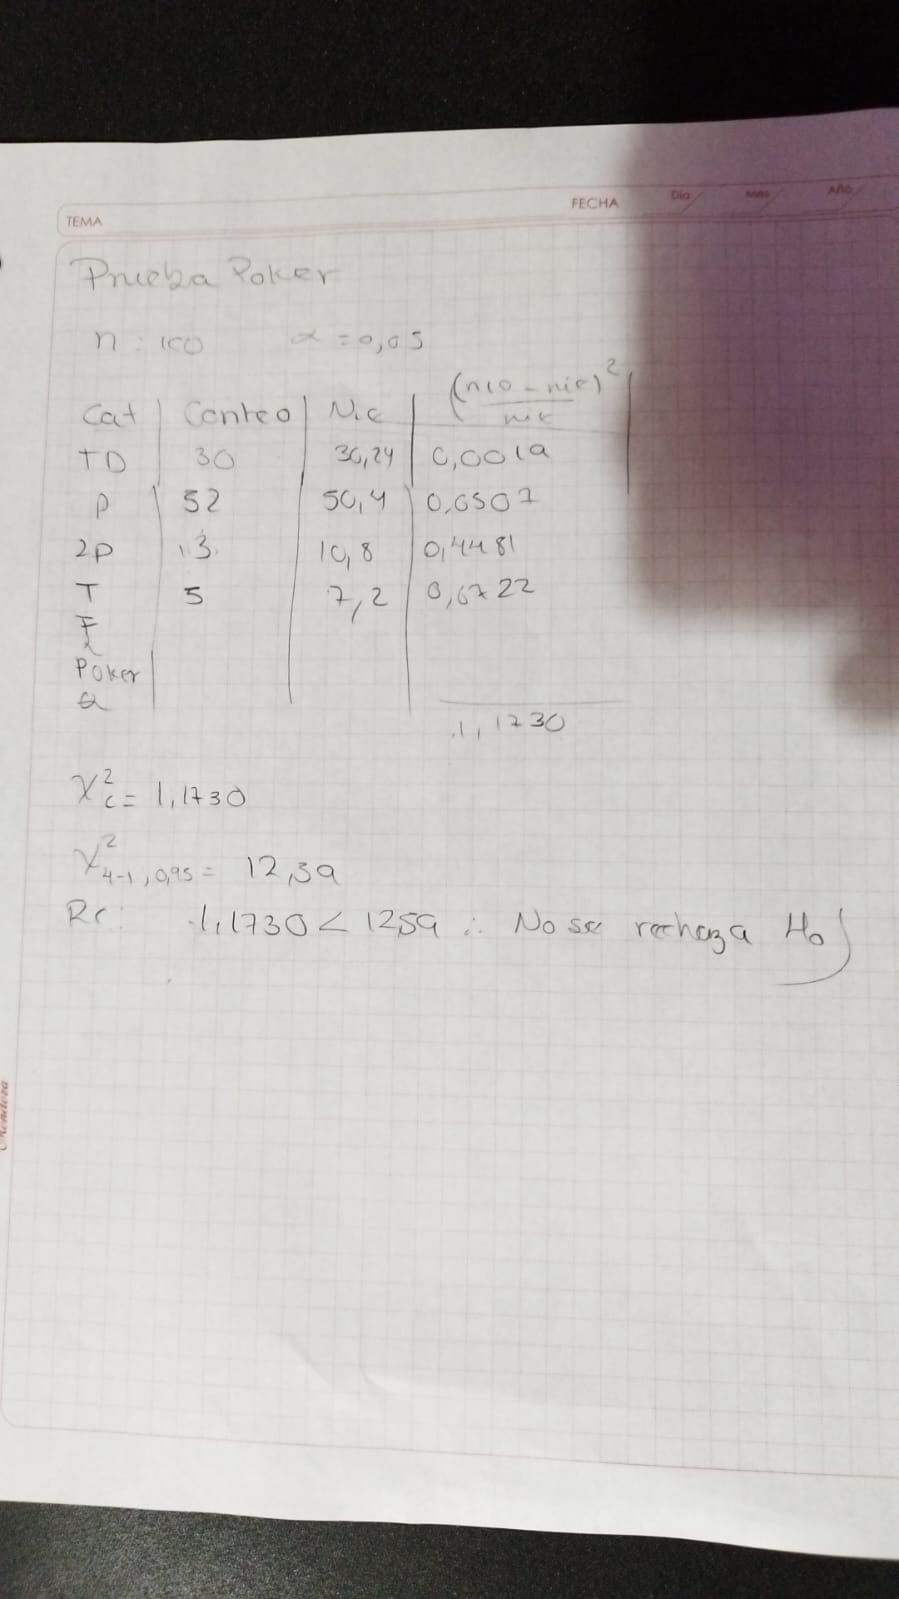 TEMA FECHA Día Mes Año
Prueba Poker
n : 100 α = 0,05
Cat Conteo Nie (nio - nie)²/nie
TD 30 30,24 0,0019
P 52 50,4 0,0507
2P 13 10,8 0,4481
T 5 7,2 0,6722
F
Poker
Q
1,1730
χ²c = 1,1730
χ²4-1, 0,95 = 12,59
Rc: 1,1730 < 12,59 ∴ No se rechaza H₀